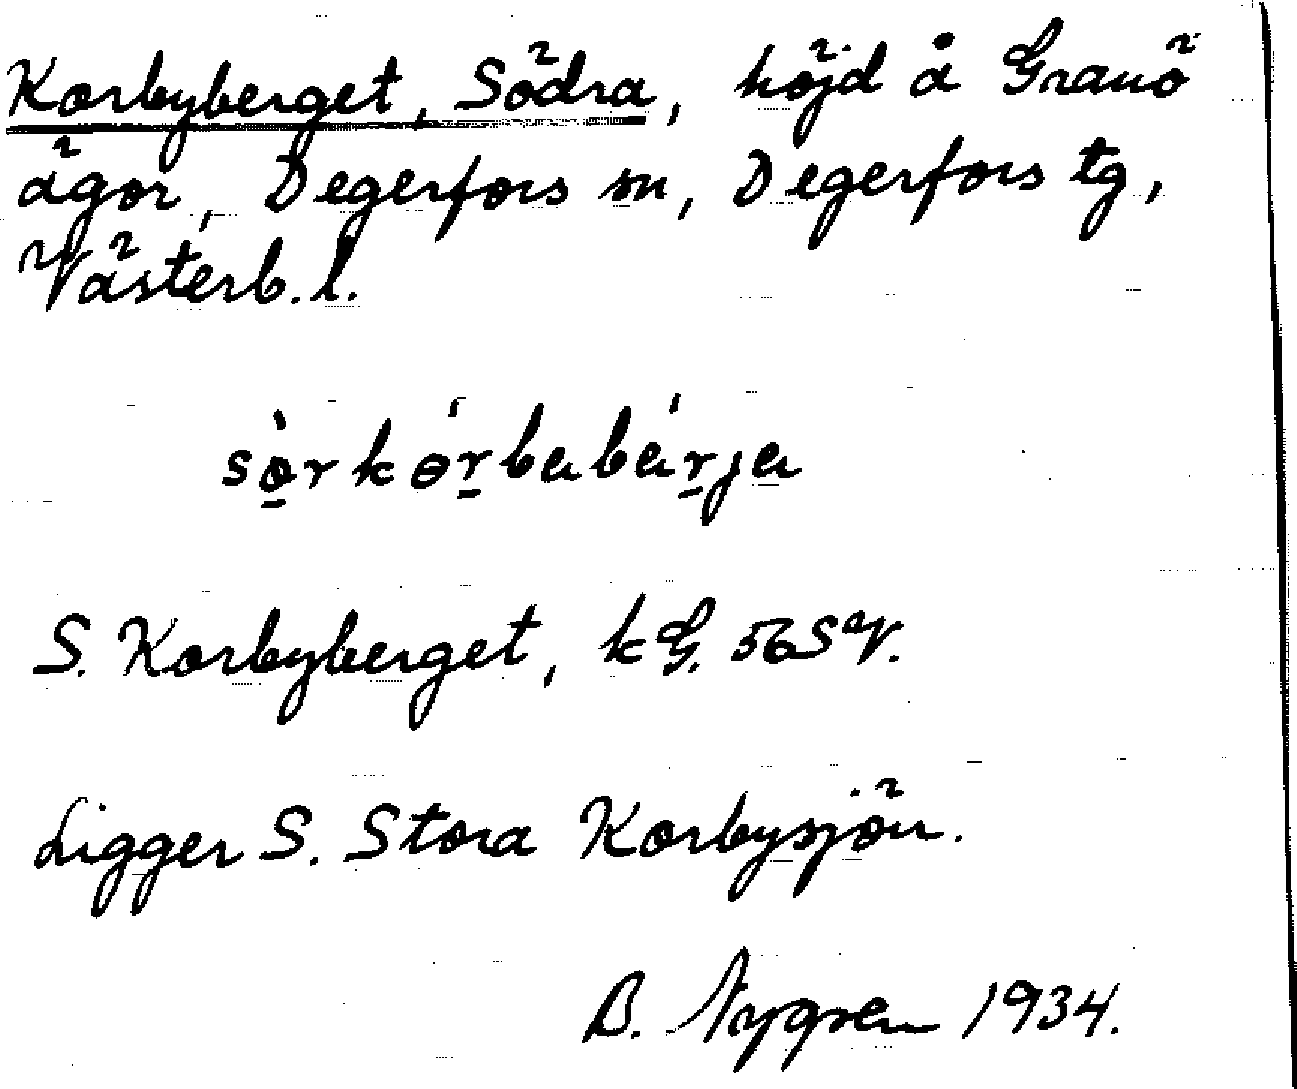 Korbyberget, Södra, höjd å Granö
ägor, Degerfors sn, Degerfors tg,
Västerb. l.
sòrkɵ́rbabárja
S. Korbyberget, kG. 56SV.
Ligger S. Stora Korbysjön.
B. Nygren 1934.